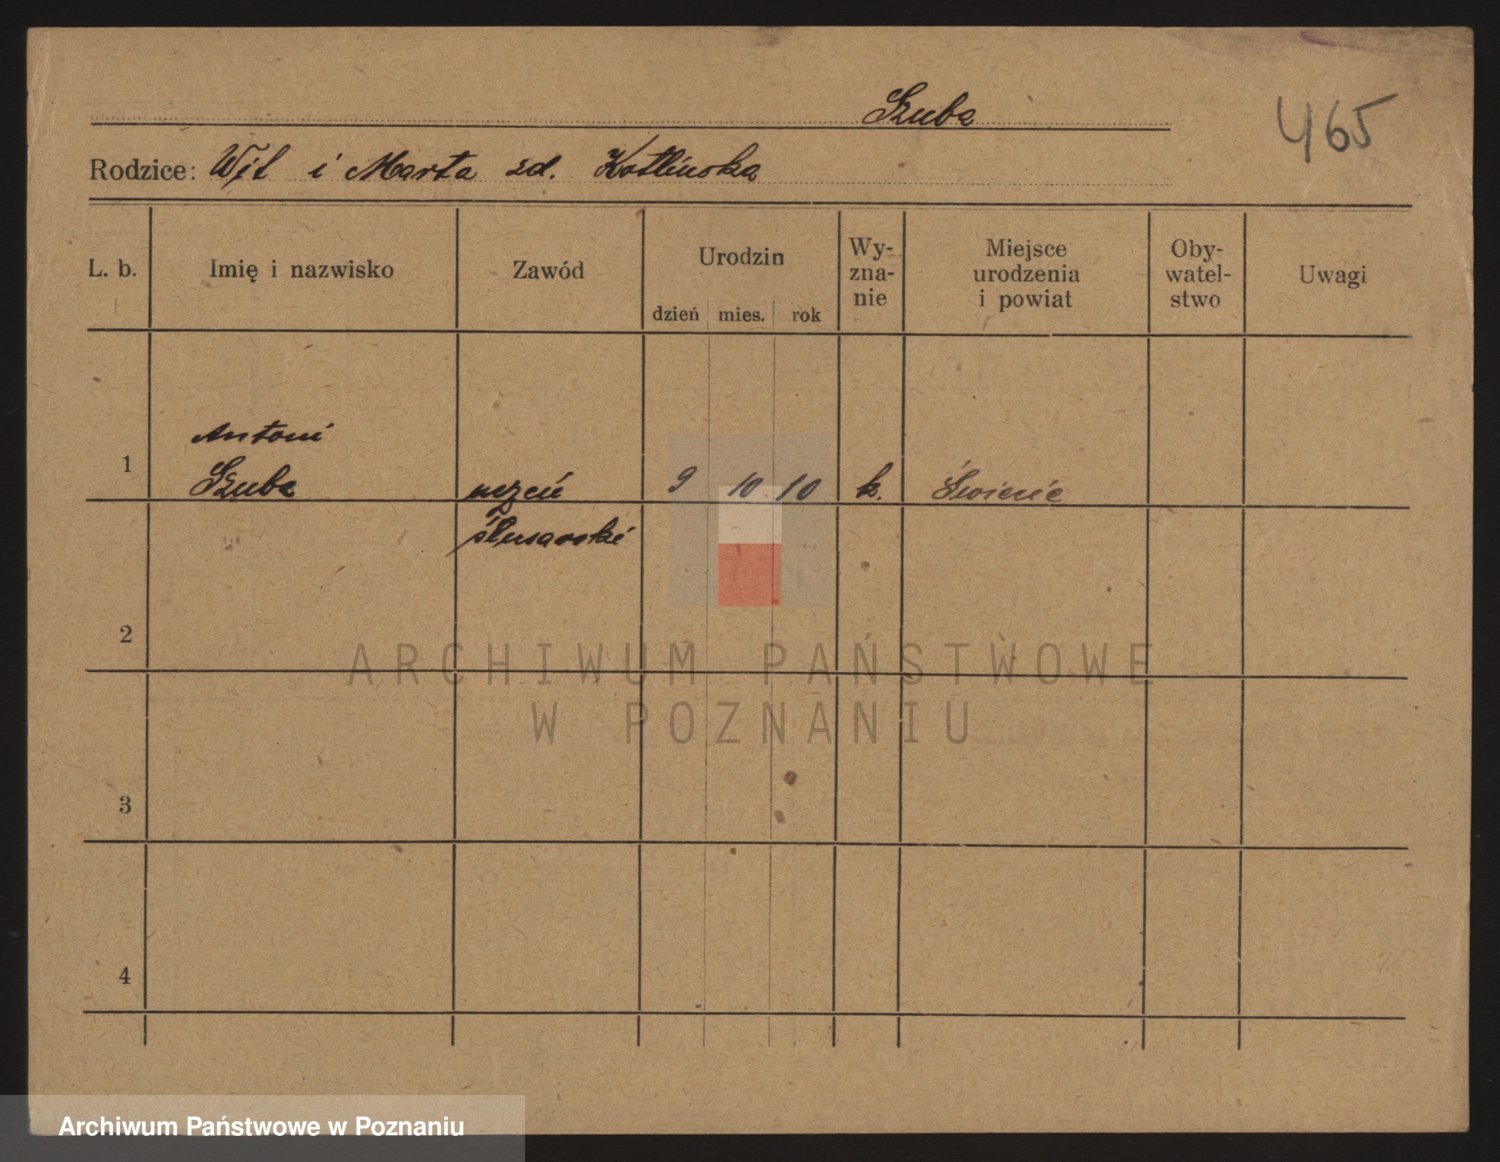 Szuba
465
Rodzice: Wit i Marta zd. Kotlińska
L. b.
Imię i nazwisko
Zawód
Urodzin
dzień mies. rok
Wy-
zna-
nie
Miejsce
urodzenia
i powiat
Oby-
watel-
stwo
Uwagi
1
Antoni
Szuba
uczeń
ślusarski
9 10 10
k.
2
3
4
ARCHIWUM PAŃSTWOWE
W POZNANIU
Archiwum Państwowe w Poznaniu